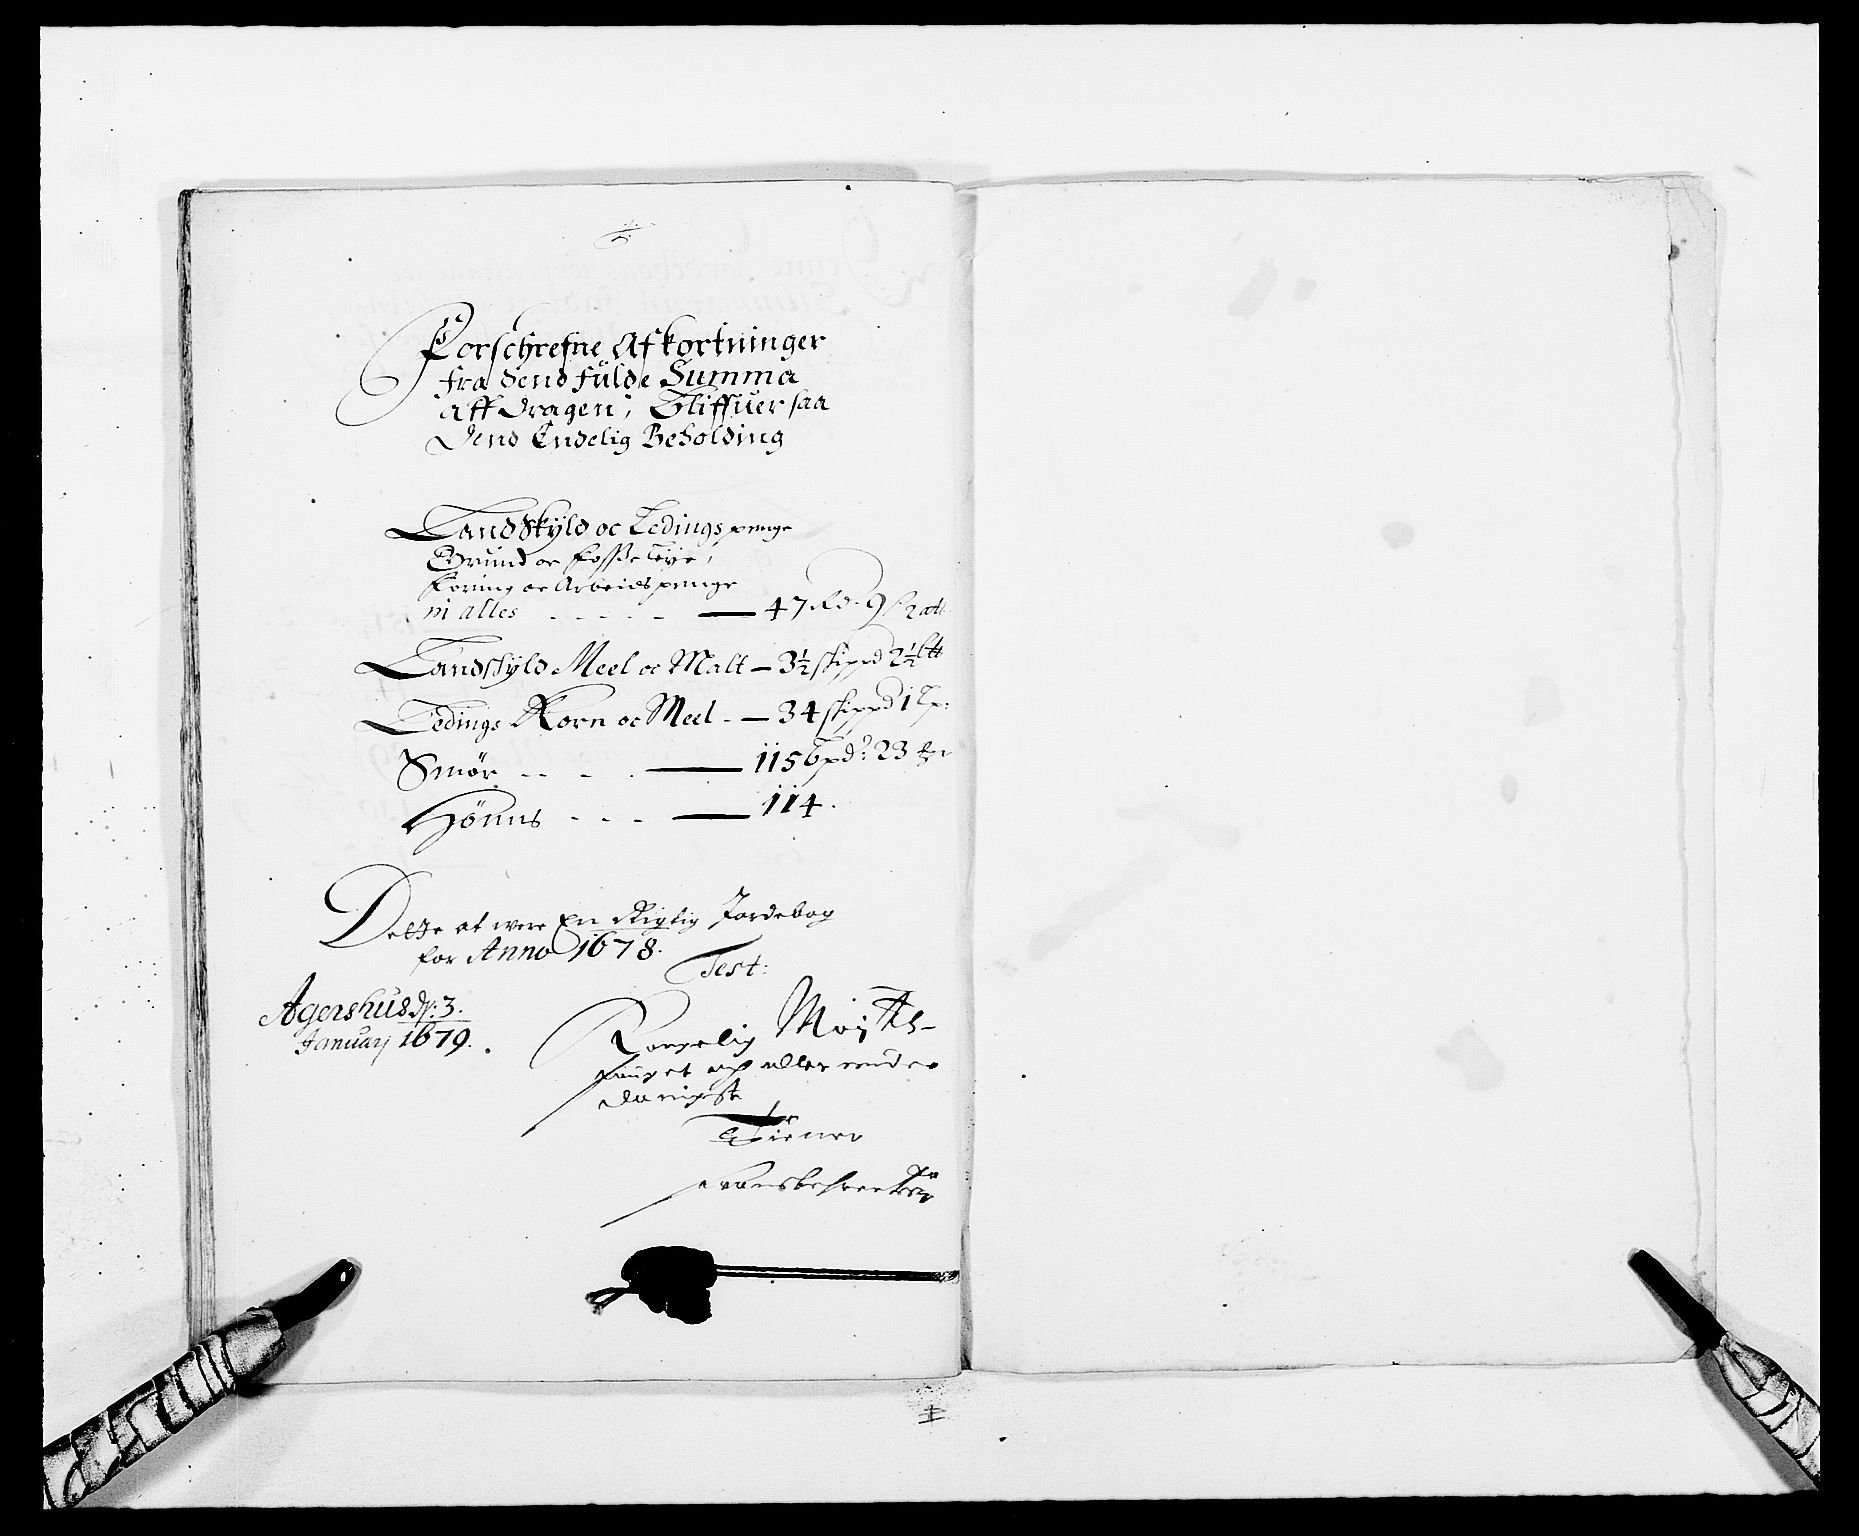 Forschrefne Afkortninger
fra dend fulde Summa
aff dragen, Bliffuer saa
Dend Endelig Beholding
Landskyld oc Ledings penge
Grund oc Fosse Leye,
Foring oc Arbeids penge
in alles - - - - - 47 Rd. 9 ß 2 alb
Landskyld Meel oc Malt - 3½ skippd 2½ Ltt
Ledings Korn oc Meel - 34 skippd 1 Lp:
Smør - - - - 115 bpd: 23
Hønns - - - 114.
Dette at were En Rigtig Jordebog
for Anno 1678.
Test:
Agershus d: 3.
January 1679.
Kongelig Maytts-
Tiener